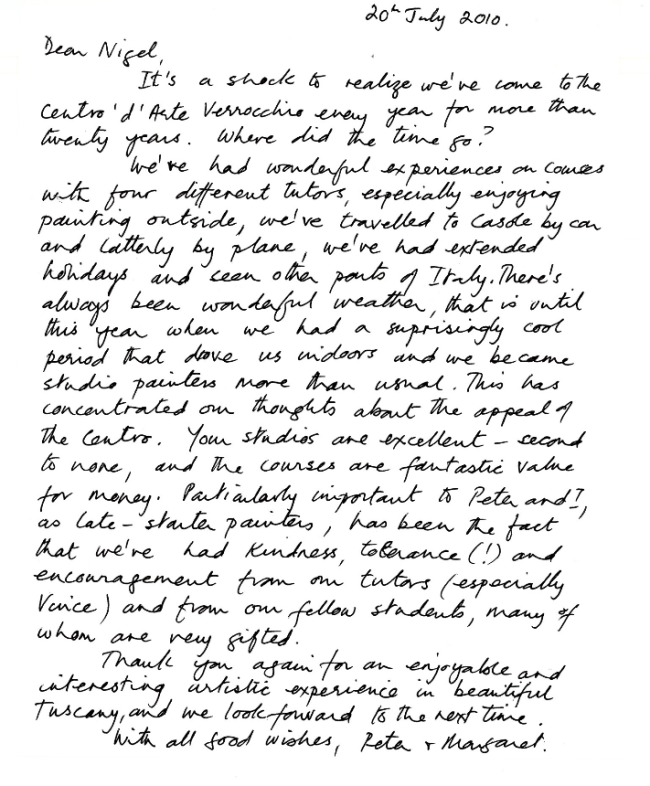 20th July 2010.
Dear Nigel,
It's a shock to realize we've come to the
Centro 'd'Arte Verrocchio every year for more than
twenty years. Where did the time go?
We've had wonderful experiences on courses
with four different tutors, especially enjoying
painting outside, we've travelled to Casole by car
and latterly by plane, we've had extended
holidays and seen other parts of Italy. There's
always been wonderful weather, that is until
this year when we had a suprisingly cool
period that drove us indoors and we became
studio painters more than usual. This has
concentrated our thoughts about the appeal of
the Centro. Your studios are excellent – second
to none, and the courses are fantastic value
for money. Particularly important to Peter and I,
as late-starter painters, has been the fact
that we've had kindness, tolerance (!) and
encouragement from our tutors (especially
Vince) and from our fellow students, many of
whom are very gifted.
Thank you again for an enjoyable and
interesting artistic experience in beautiful
Tuscany, and we look forward to the next time.
With all good wishes, Peter + Margaret.